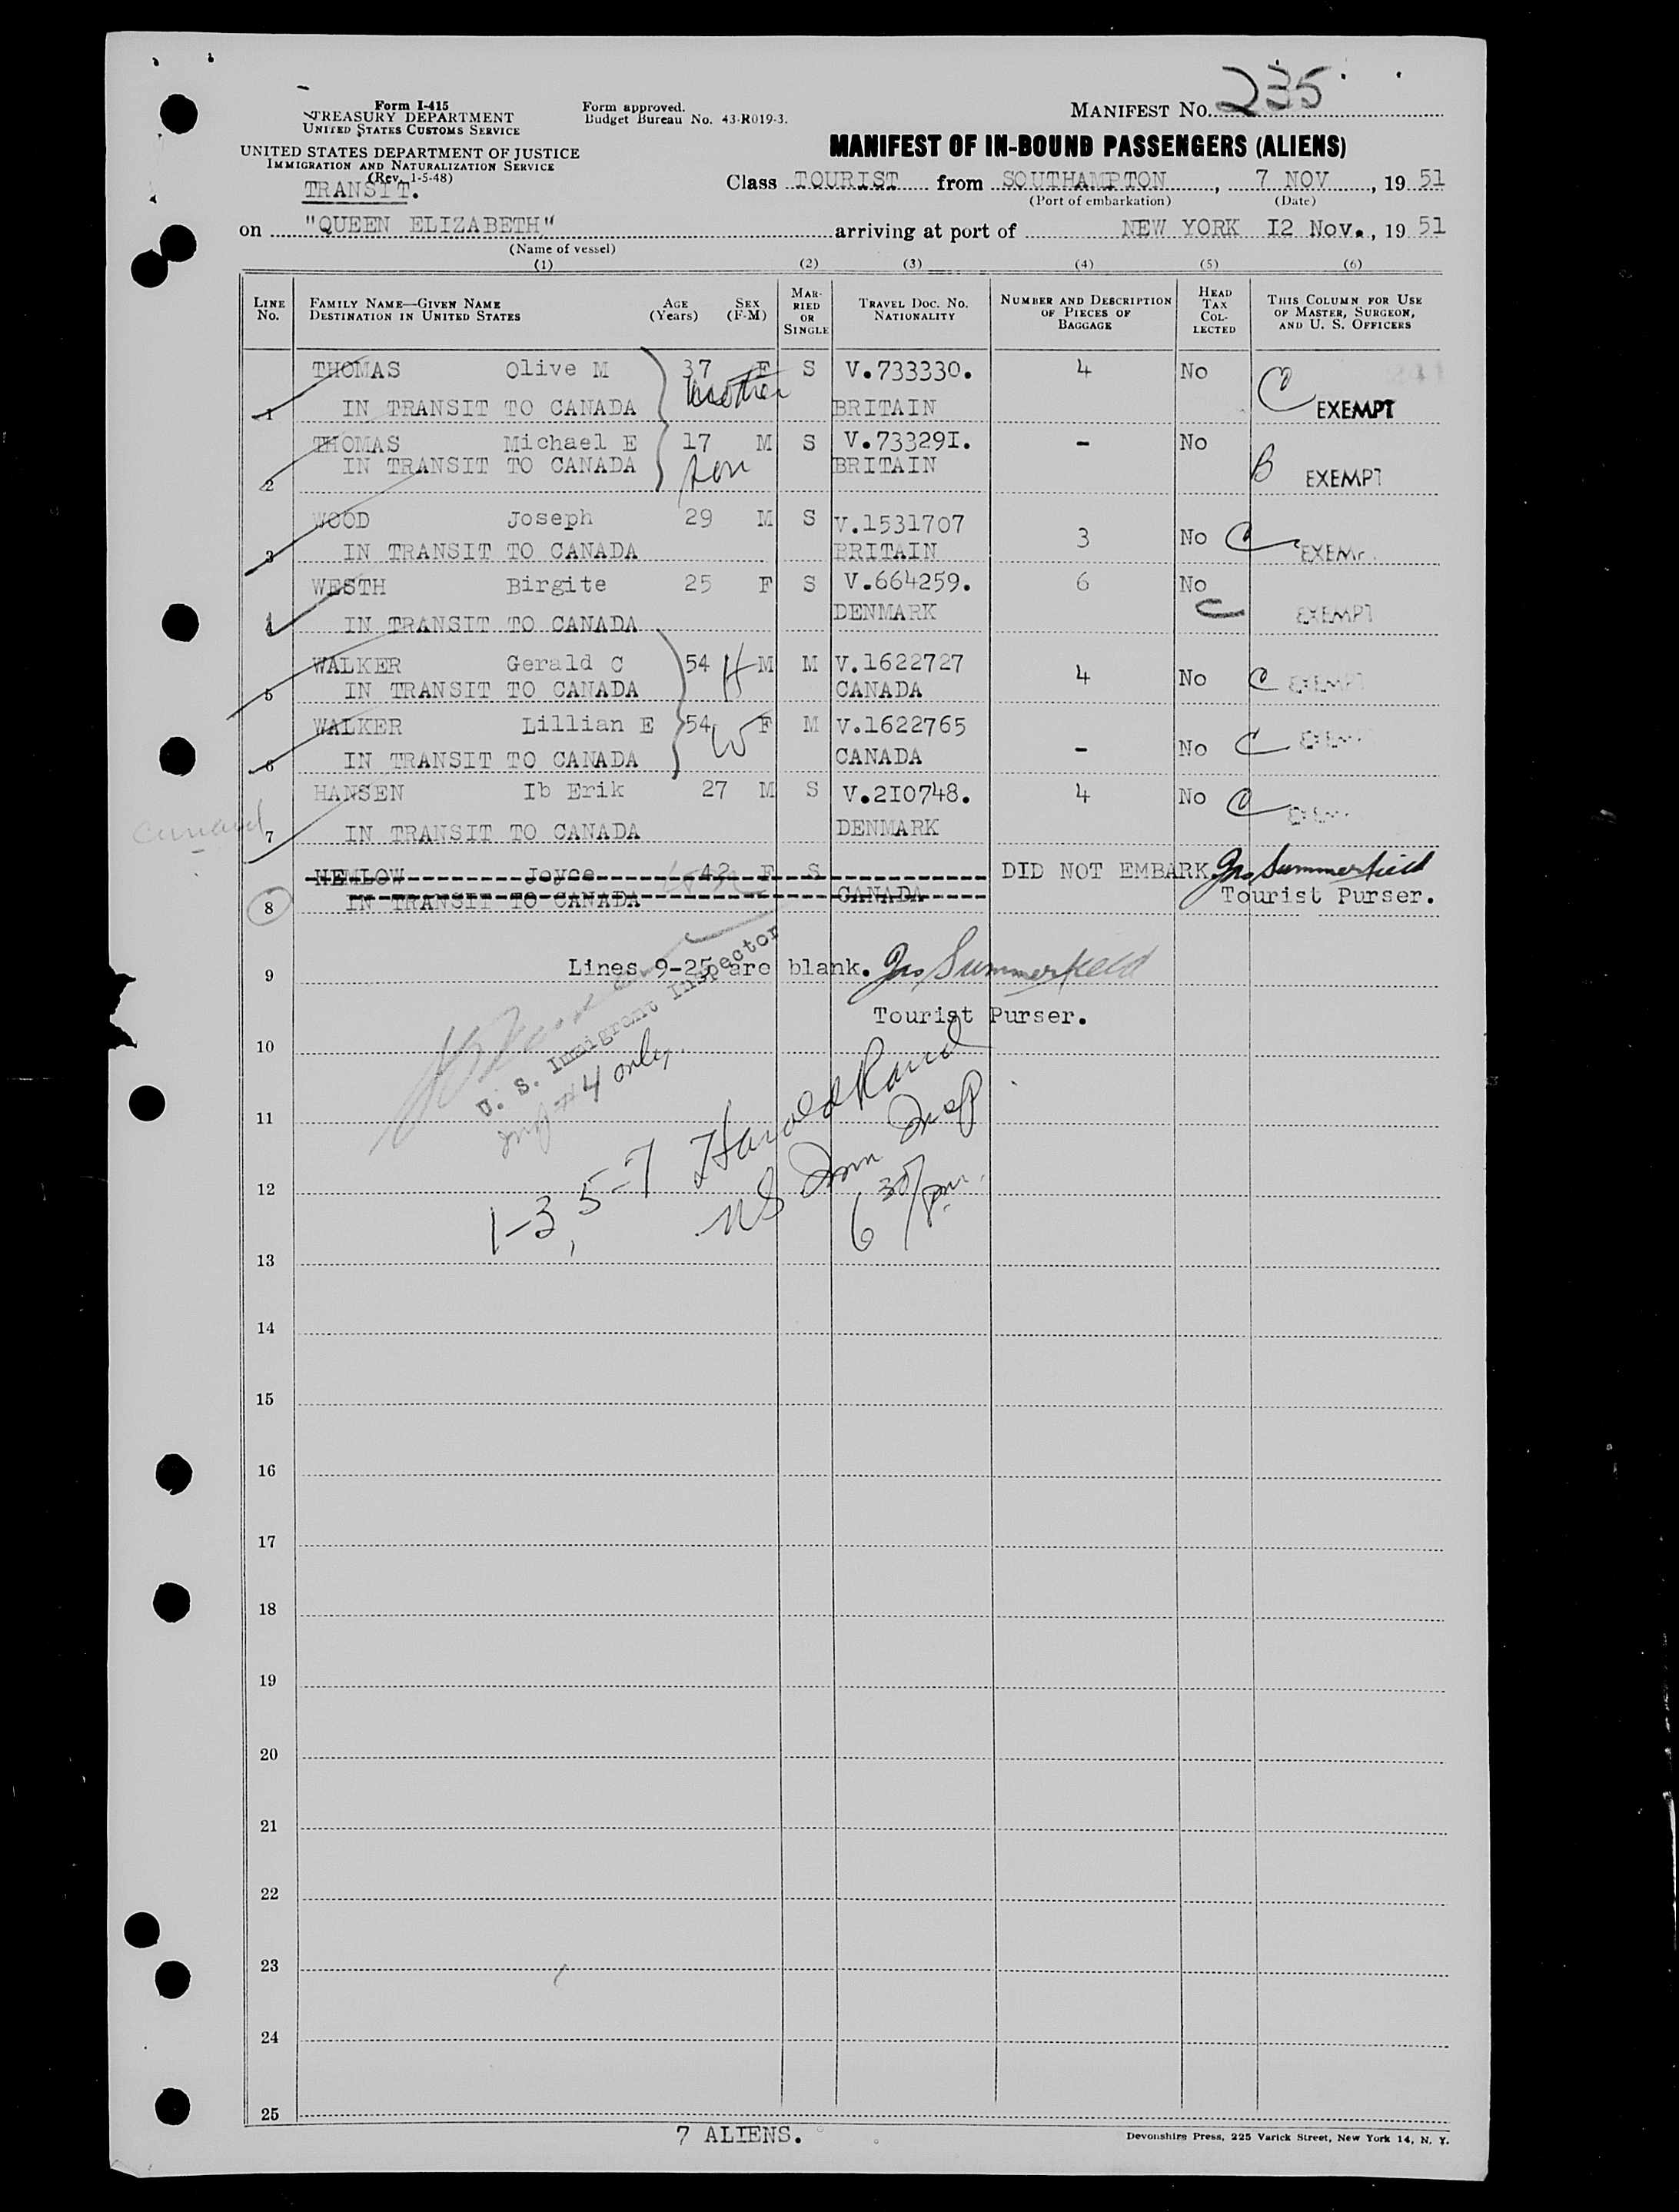 Form I-415
TREASURY DEPARTMENT
UNITED STATES CUSTOMS SERVICE
UNITED STATES DEPARTMENT OF JUSTICE
IMMIGRATION AND NATURALIZATION SERVICE
(Rev. 1-5-48)
TRANSIT.
Form approved.
Budget Bureau No. 43-R019-3.
MANIFEST No. 235
MANIFEST OF IN-BOUND PASSENGERS (ALIENS)
Class TOURIST from SOUTHAMPTON, 7 NOV, 19 51
(Port of embarkation) (Date)
on "QUEEN ELIZABETH" arriving at port of NEW YORK 12 Nov., 19 51
(Name of vessel)
(1) (2) (3) (4) (5) (6)
LINE No. FAMILY NAME—GIVEN NAME DESTINATION IN UNITED STATES AGE (Years) SEX (F-M) MARRIED OR SINGLE TRAVEL DOC. NO. NATIONALITY NUMBER AND DESCRIPTION OF PIECES OF BAGGAGE HEAD TAX COLLECTED THIS COLUMN FOR USE OF MASTER, SURGEON, AND U. S. OFFICERS
THOMAS Olive M 37 F S V.733330. 4 No C
1 IN TRANSIT TO CANADA mother BRITAIN EXEMPT
THOMAS Michael E 17 M S V.733291. - No B
2 IN TRANSIT TO CANADA son BRITAIN EXEMPT
WOOD Joseph 29 M S V.1531707 3 No C
3 IN TRANSIT TO CANADA BRITAIN EXEMPT
WESTH Birgite 25 F S V.664259. 6 No C
4 IN TRANSIT TO CANADA DENMARK EXEMPT
WALKER Gerald C 54 H M M V.1622727 4 No C EXEMPT
5 IN TRANSIT TO CANADA CANADA
WALKER Lillian E 54 W F M V.1622765 - No C EXEMPT
6 IN TRANSIT TO CANADA CANADA
HANSEN Ib Erik 27 M S V.210748. 4 No C EXEMPT
Cunard 7 IN TRANSIT TO CANADA DENMARK
HEMLOW Joyce 42 F S DID NOT EMBARK Jas Summerfield
8 IN TRANSIT TO CANADA CANADA Tourist Purser.
9 Lines 9-25 are blank. Jas Summerfield
Tourist Purser.
U. S. Immigrant Inspector
#4 only
10
11
1-3, 5-7 Harold Rand
US Imm Insp
6 30/pm.
12
13
14
15
16
17
18
19
20
21
22
23
24
25
7 ALIENS.
Devonshire Press, 225 Varick Street, New York 14, N. Y.